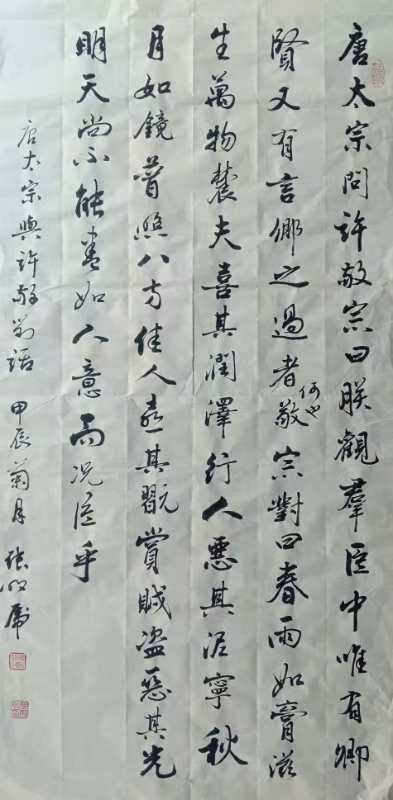 唐太宗問許敬宗曰朕觀羣臣中唯有卿
賢又有言卿之過者何也敬宗對曰春雨如膏滋
生萬物農夫喜其潤澤行人惡其泥寧秋
月如鏡普照八方佳人喜其翫賞賊盗惡其光
明天尚不能盡如人意而况臣乎
唐太宗與許敬宗對話 甲辰菊月 張